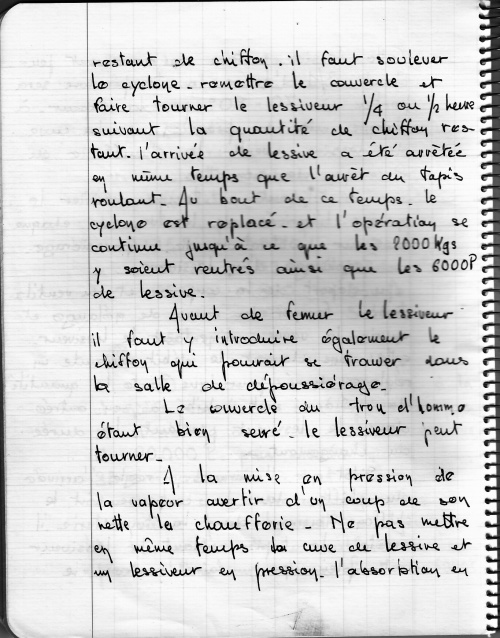 restant de chiffon. il faut soulever
le cyclone. remettre le couvercle et
faire tourner le lessiveur 1/4 ou 1/2 heure
suivant la quantité de chiffon res-
tant. l'arrivée de lessive a été arrêtée
en même temps que l'arrêt du tapis
roulant. Au bout de ce temps. le
cyclone est replacé. et l'opération se
continue jusqu'à ce que les 2000 Kgs
y soient rentrés ainsi que les 6000 l
de lessive.
Avant de fermer le lessiveur
il faut y introduire également le
chiffon qui pourrait se trouver dans
la salle de dépoussiérage.
Le couvercle du trou d'homme
étant bien serré. le lessiveur peut
tourner.
A la mise en pression de
la vapeur avertir d'un coup de son
nette la chaufferie. Ne pas mettre
en même temps la cuve de lessive et
un lessiveur en pression. l'absorbtion en